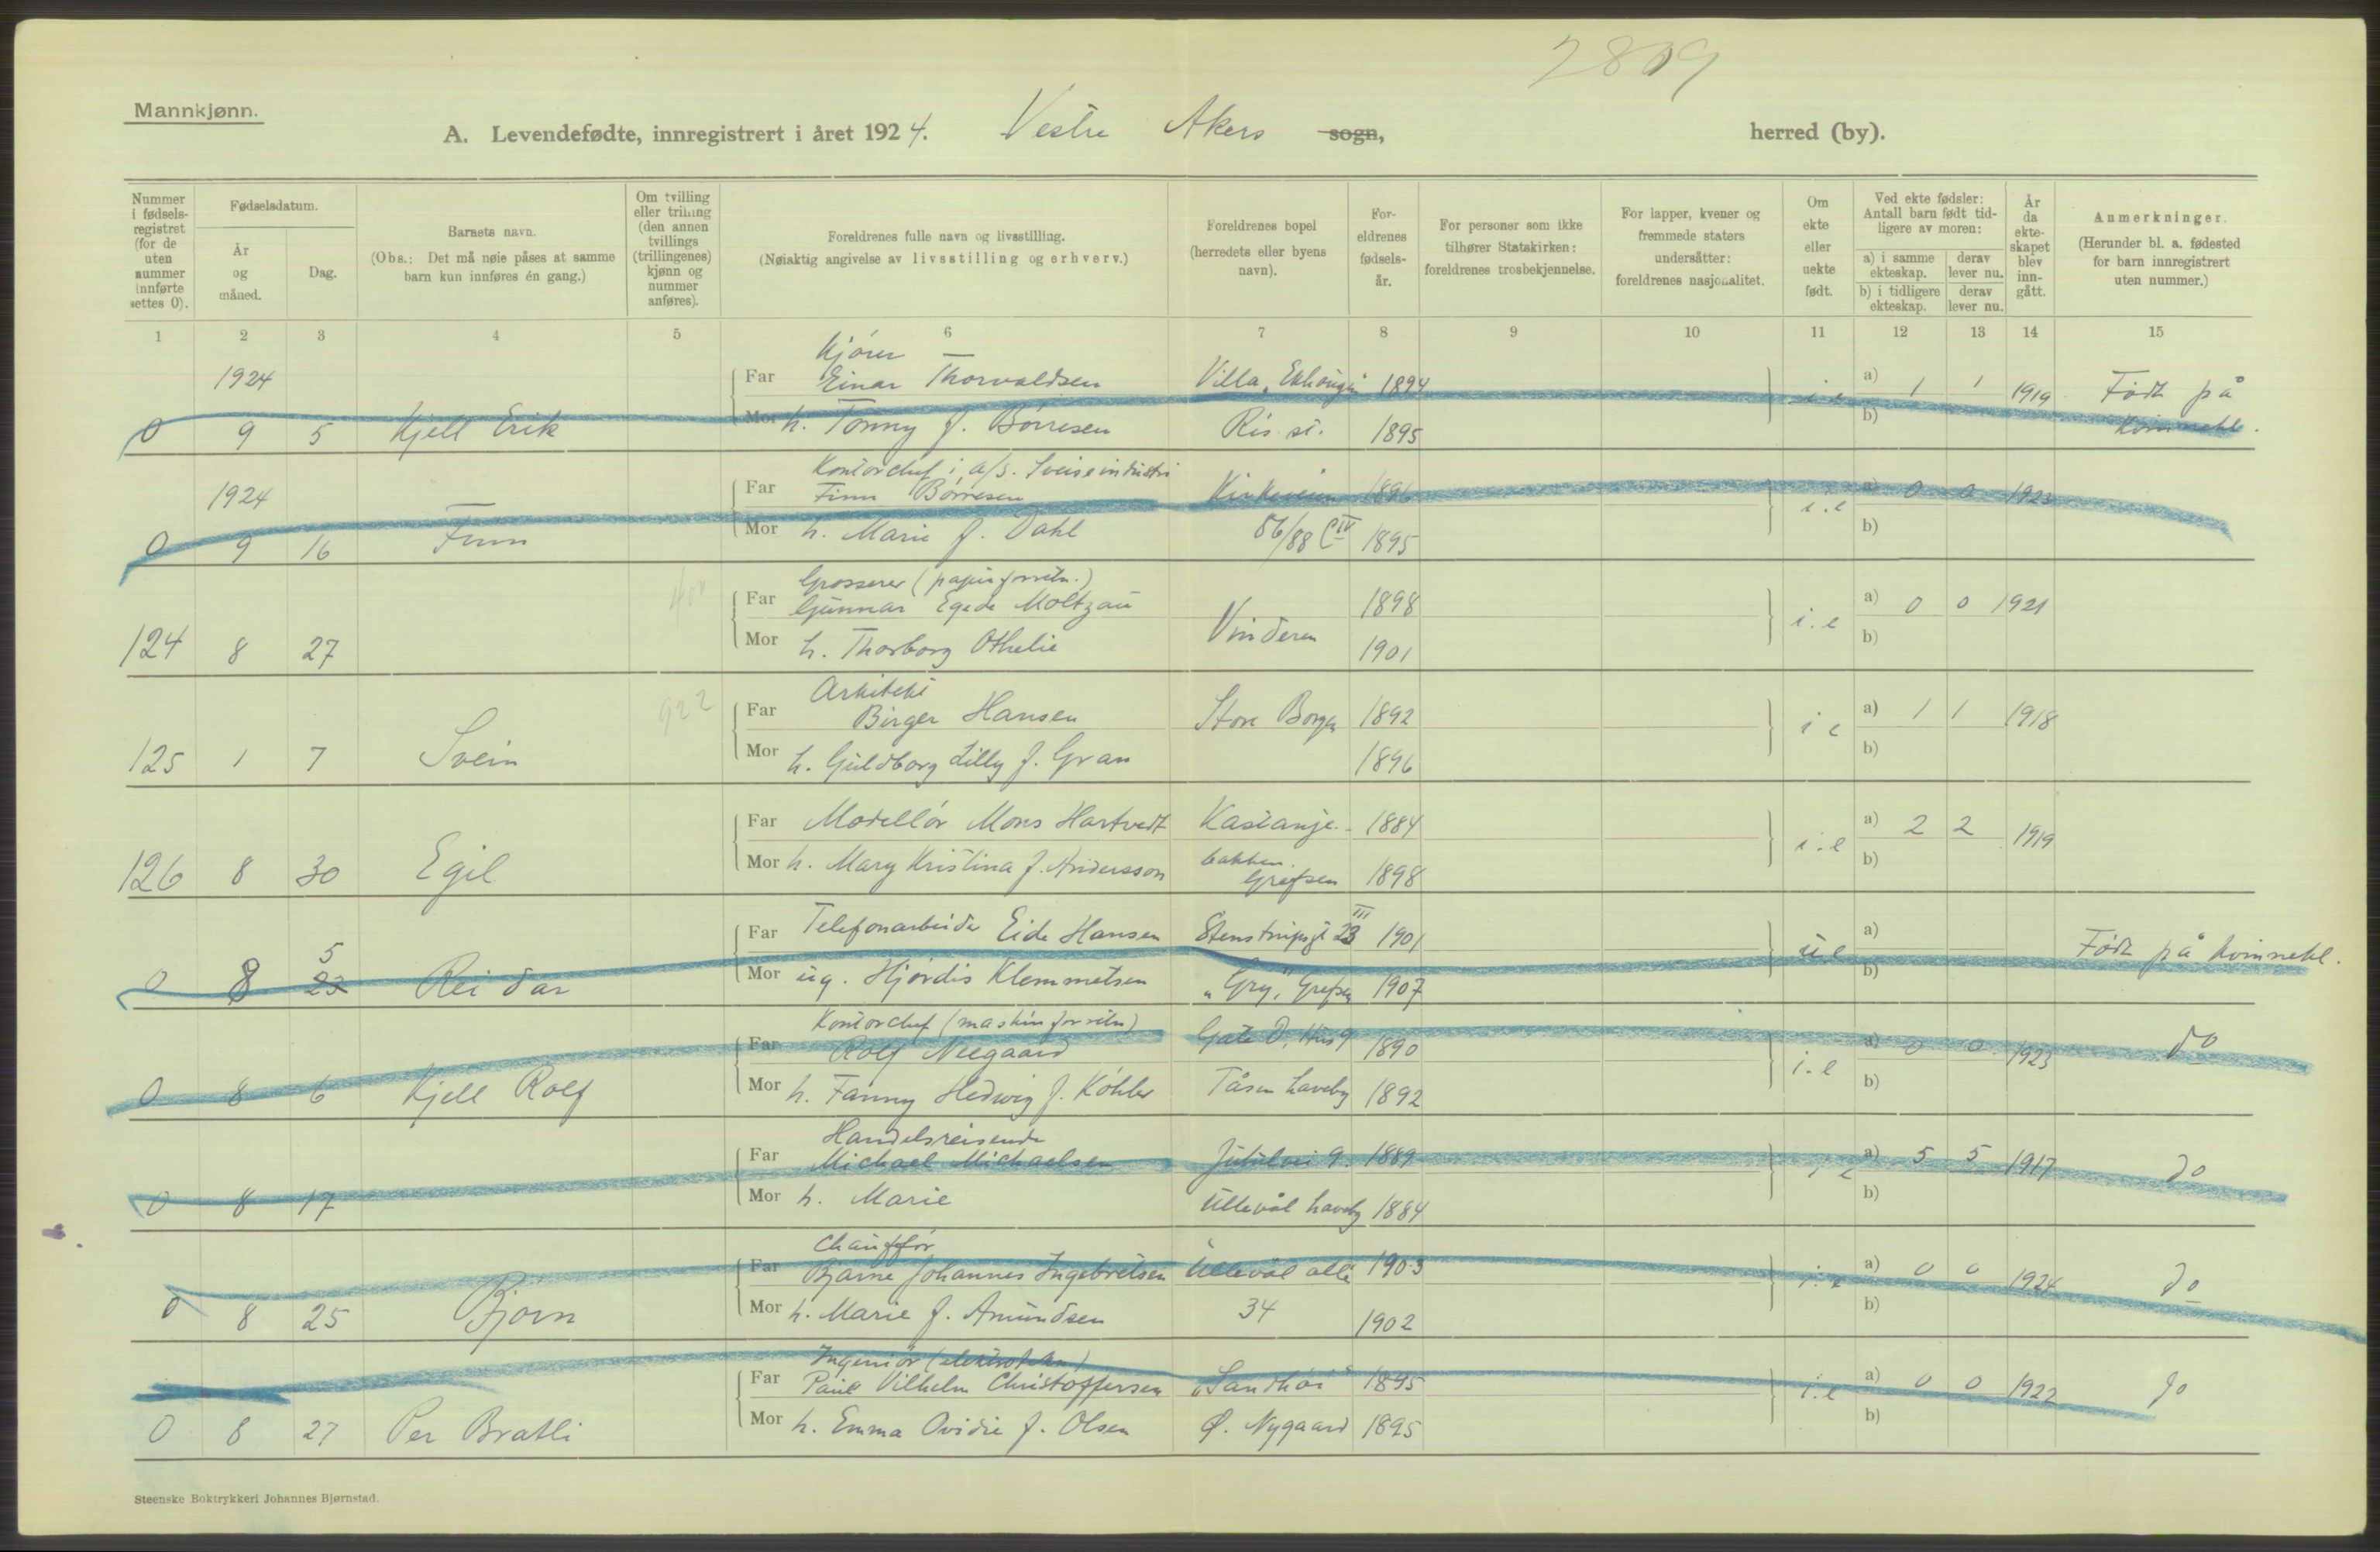 2809
Mannkjønn.
A. Levendefødte, innregistrert i året 1924. Vestre Akers sogn, herred (by).
Nummer i fødselsregistret (for de uten nummer innførte settes 0).
Fødselsdatum.
År og måned.
Dag.
Barnets navn.
(Obs.: Det må nøie påses at samme barn kun innføres én gang.)
Om tvilling eller trilling (den annen tvillings (trillingenes) kjønn og nummer anføres).
Foreldrenes fulle navn og livsstilling.
(Nøiaktig angivelse av livsstilling og erhverv.)
Foreldrenes bopel (herredets eller byens navn).
Foreldrenes fødselsår.
For personer som ikke tilhører Statskirken: foreldrenes trosbekjennelse.
For lapper, kvener og fremmede staters undersåtter: foreldrenes nasjonalitet.
Om ekte eller uekte født.
Ved ekte fødsler: Antall barn født tidligere av moren:
a) i samme ekteskap. derav lever nu.
b) i tidligere ekteskap. derav lever nu.
År da ekteskapet blev inngått.
Anmerkninger.
(Herunder bl. a. fødested for barn innregistrert uten nummer.)
1 2 3 4 5 6 7 8 9 10 11 12 13 14 15
Kjører
1924 Far Einar Thorvaldsen Villa 1894 i e a) 1 1 1919 Født på
0 9 5 Kjell Erik Mor h. Tonny f. Børresen Ris st. 1895 b) Kvinnekl.
Kontorchef i A/S. Sveiseindustri
1924 Far Finn Børresen Kirkeveien 1896 i.e a) 0 0 1923
0 9 16 Finn Mor h. Marie f. Dahl 86/88 C IV 1895 b)
Grosserer (papirforretn.)
Far Gunnar Egede Moltzau Vinderen 1898 i.e a) 0 0 1921
124 8 27 Mor h. Thorborg Othelie 1901 b)
922
Arkitekt
Far Birger Hansen Store Borgen 1892 i e a) 1 1 1918
125 1 7 Svein Mor h. Guldborg Lilly f. Gran 1896 b)
Far Modellør Mons Hartvedt Kastanje- 1884 i.e a) 2 2 1919
126 8 30 Egil Mor h. Mary Kristina f. Andersson bakken. Grefsen 1898 b)
Far Telefonarbeider Eide Hansen Stenstrupsgt 23 III 1901 u e a) Født på kvinnekl.
0 8 23 5 Reidar Mor ug. Hjørdis Klemmetsen "Gry", Grefsen 1907 b)
Kontorchef (maskinforretn)
Far Rolf Neegaard Gate D, Hus 9 1890 i.e a) 0 0 1923 do
0 8 6 Kjell Rolf Mor h. Fanny Hedwig f. Köhler Tåsen haveby 1892 b)
Handelsreisende
Far Michael Michaelsen Jutulvei 9. 1889 i e a) 5 5 1917 do
0 8 17 Mor h. Marie Ullevål haveby 1884 b)
Chauffør
Far Bjarne Johannes Ingebretsen Ullevål allé 1903 i.e a) 0 0 1924 do
0 8 25 Bjørn Mor h. Marie f. Amundsen 34 1902 b)
Ingeniør (elektrotekn)
Far Paul Vilhelm Christoffersen "Sandhøi" 1895 i.e a) 0 0 1922 do
0 8 27 Per Bratli Mor h. Emma Ovidie f. Olsen Ø. Nygaard 1895 b)
Steenske Boktrykkeri Johannes Bjørnstad.